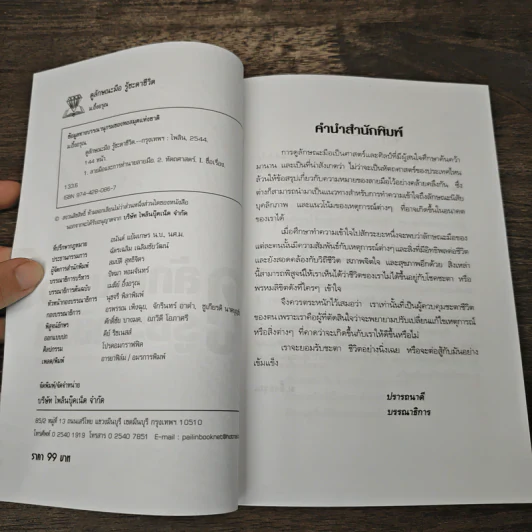 ดูลักษณะมือ รู้ชะตาชีวิต
ม.อึ้งอรุณ
ข้อมูลทางบรรณานุกรมของหอสมุดแห่งชาติ
ม.อึ้งอรุณ.
ดูลักษณะมือ รู้ชะตาชีวิต.--กรุงเทพฯ : ไพลิน, 2544.
144 หน้า.
1. ลายมือและการทำนายลายมือ. 2. หัตถศาสตร์. I. ชื่อเรื่อง.
133.6
ISBN 974-428-086-7
© สงวนลิขสิทธิ์
บริษัท ไพลินบุ๊คเน็ต จำกัด
ที่ปรึกษากฎหมาย
ประธานกรรมการ
ผู้จัดการสำนักพิมพ์
บรรณาธิการบริหาร
บรรณาธิการต้นฉบับ
หัวหน้ากองบรรณาธิการ
กองบรรณาธิการ
พิสูจน์อักษร
ออกแบบปก
ศิลปกรรม
เพลต/พิมพ์
จัดพิมพ์/จัดจำหน่าย
บริษัท ไพลินบุ๊คเน็ต จำกัด
85/2 หมู่ที่ 13 ถนนเสรีไทย แขวงมีนบุรี เขตมีนบุรี กรุงเทพฯ 10510
โทรศัพท์ 0 2540 1919 โทรสาร 0 2540 7851 E-mail :
ราคา 99 บาท
คำนำสำนักพิมพ์
การดูลักษณะมือเป็นศาสตร์และศิลป์ที่มีผู้สนใจศึกษาค้นคว้า
มานาน และเป็นที่น่าสังเกตว่า ไม่ว่าจะเป็นหัตถศาสตร์ของประเทศไหน
ล้วนให้ข้อสรุปเกี่ยวกับความหมายของลายมือไว้อย่างคล้ายคลึงกัน ซึ่ง
ต่างก็สามารถนำมาเป็นแนวทางสำหรับการทำความเข้าใจถึงลักษณะนิสัย
บุคลิกภาพ และแนวโน้มของเหตุการณ์ต่างๆ ที่อาจเกิดขึ้นในอนาคต
ของเราได้
เมื่อศึกษาทำความเข้าใจไปสักระยะหนึ่งจะพบว่าลักษณะมือของ
แต่ละคนนั้นมีความสัมพันธ์กับเหตุการณ์ต่างๆและสิ่งที่มีอิทธิพลต่อชีวิต
และยังสอดคล้องกับวิถีชีวิต สภาพจิตใจ และสุขภาพอีกด้วย สิ่งเหล่า
นี้สามารถพิสูจน์ให้เราเห็นได้ว่าชีวิตของเราไม่ได้ขึ้นอยู่กับโชคชะตา หรือ
พรหมลิขิตดังที่ใครๆ เข้าใจ
จึงควรตระหนักไว้เสมอว่า เราเท่านั้นที่เป็นผู้ควบคุมชะตาชีวิต
ของตน เพราะเราคือผู้ที่ตัดสินใจว่าจะพยายามปรับเปลี่ยนแก้ไขเหตุการณ์
หรือสิ่งต่างๆ ที่คาดว่าจะเกิดขึ้นกับเราให้ดีขึ้นหรือไม่
เราจะยอมรับชะตา ชีวิตอย่างนิ่งเฉย หรือจะต่อสู้กับมันอย่าง
เข้มแข็ง
ปรารถนาดี
บรรณาธิการ